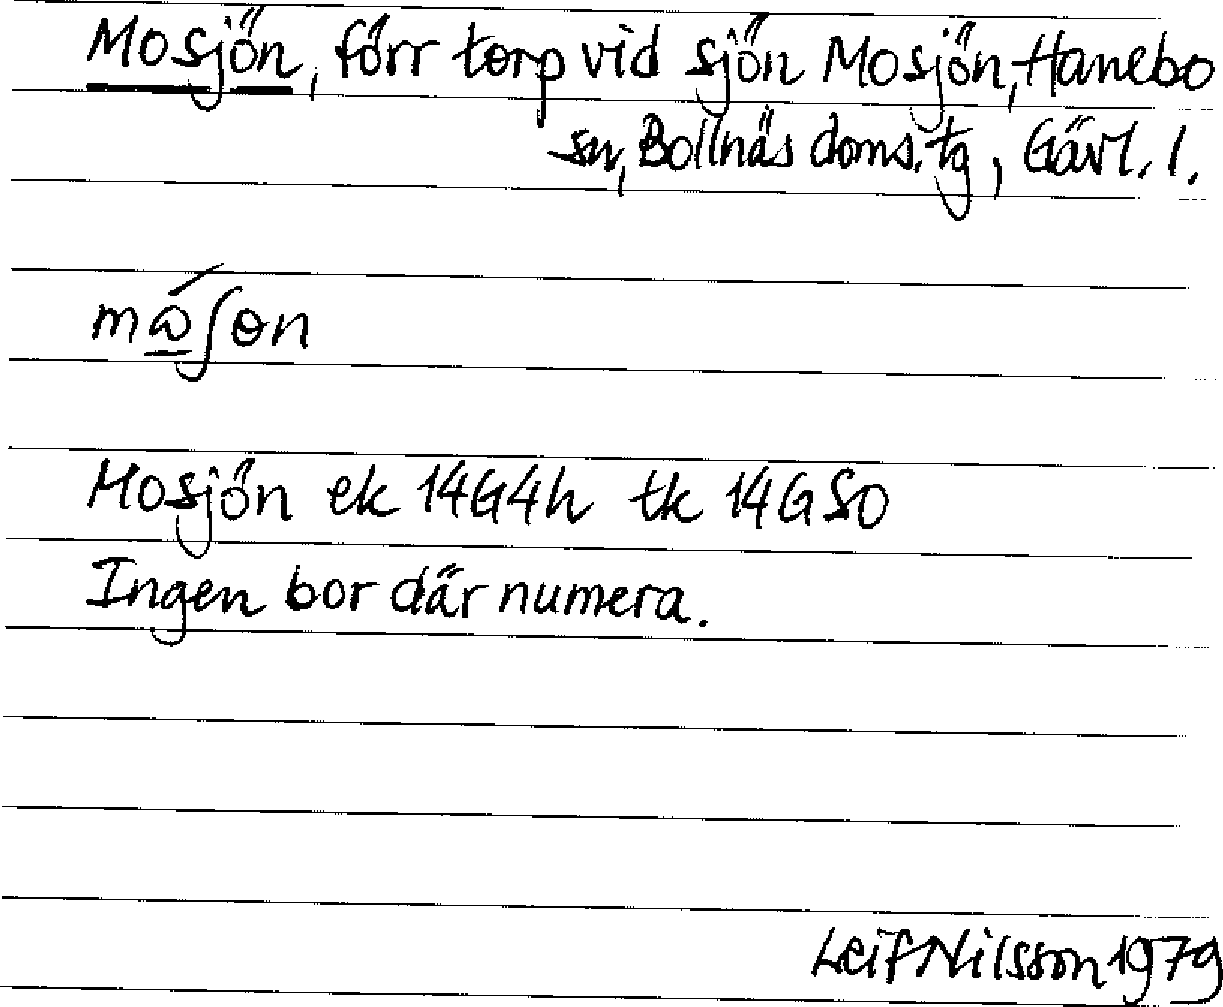 Mosjön, förr torp vid sjön Mosjön, Hanebo
sn, Bollnäs doms. tg, Gävl. l.
Mosjön ek 14G4h tk 14GSO
Ingen bor där numera.
Leif Nilsson 1979